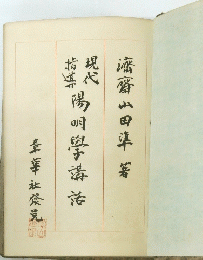 濟齋山田準著
現代
指導
陽明學講話
章華社發兌